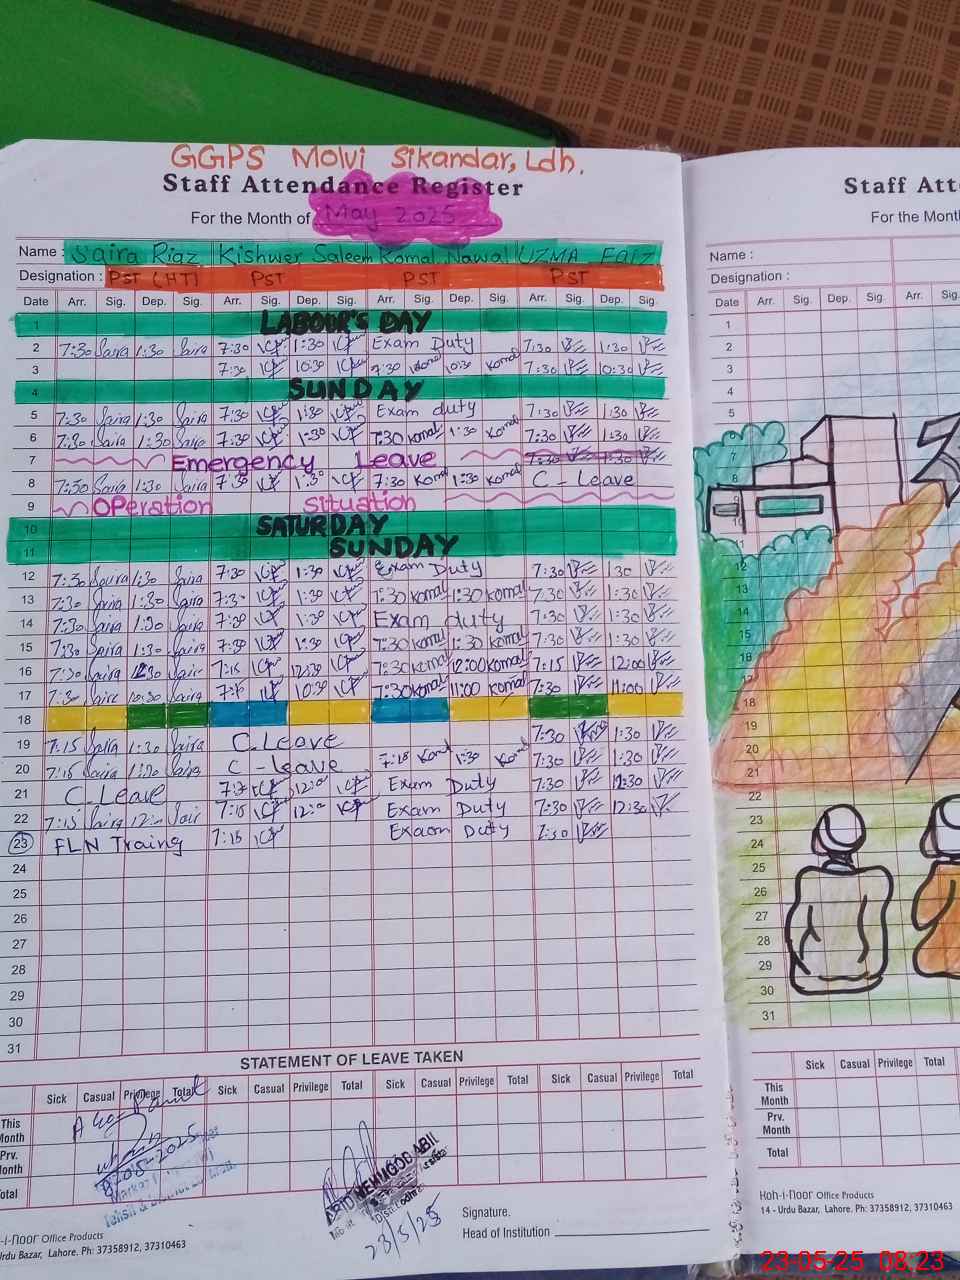 GGPS Molvi Sikandar, Ldh.
Staff Attendance Register
For the Month of May 2025
Name : Saira Riaz Kishwer Saleem Komal Nawal UZMA FAIZ
Designation : PST (HT) PST PST PST
Date Arr. Sig. Dep. Sig. Arr. Sig. Dep. Sig. Arr. Sig. Dep. Sig. Arr. Sig. Dep. Sig.
1 LABOUR'S DAY
2 7:30 Saira 1:30 Saira 7:30 1:30 Exam Duty 7:30 1:30
3 7:30 10:30 7:30 Komal 10:30 Komal 7:30 10:30
4 SUNDAY
5 7:30 Saira 1:30 Saira 7:30 1:30 Exam duty 7:30 1:30
6 7:30 Saira 1:30 Saira 7:30 1:30 7:30 Komal 1:30 Komal 7:30 1:30
7 Emergency Leave 7:30 1:30
8 7:30 Saira 1:30 Saira 7:30 1:30 7:30 Komal 1:30 Komal C - Leave
9 OPeration situation
10 SATURDAY
11 SUNDAY
12 7:30 Saira 1:30 Saira 7:30 1:30 Exam Duty 7:30 1:30
13 7:30 Saira 1:30 Saira 7:30 1:30 7:30 Komal 1:30 Komal 7:30 1:30
14 7:30 Saira 1:30 Saira 7:30 1:30 Exam duty 7:30 1:30
15 7:30 Saira 1:30 Saira 7:30 1:30 7:30 Komal 1:30 Komal 7:30 1:30
16 7:30 Saira Saira 7:15 12:30 7:30 Komal 12:00 Komal 7:15 12:00
17 7:30 Saira 10:30 Saira 7:15 10:30 7:30 Komal 11:00 Komal 7:30 11:00
18
19 7:15 Saira 1:30 Saira C-Leave 7:30 1:30
20 7:15 Saira 1:30 Saira C-Leave 7:15 Komal 1:30 Komal 7:30 1:30
21 C-Leave Exam Duty 7:30 12:30
22 7:15 Saira Saira 7:15 Exam Duty 7:30 12:30
23 FLN Traing 7:15 Exaom Duty 7:30
24
25
26
27
28
29
30
31
STATEMENT OF LEAVE TAKEN
Sick Casual Privilege Total Sick Casual Privilege Total Sick Casual Privilege Total Sick Casual Privilege Total
This Month
Prv. Month
Total
23/5/25
Signature.
Head of Institution
Office Products
Urdu Bazar, Lahore. Ph: 37358912, 37310463
Staff Atte
For the Month
Name :
Designation :
Date Arr. Sig. Dep. Sig. Arr. Sig.
1
2
3
4
5
6
7
8
9
10
11
12
13
14
15
16
17
18
19
20
21
22
23
24
25
26
27
28
29
30
31
Sick Casual Privilege Total
This Month
Prv. Month
Total
Koh-i-noor Office Products
14 - Urdu Bazar, Lahore. Ph: 37358912, 37310463
23-05-25 08:23